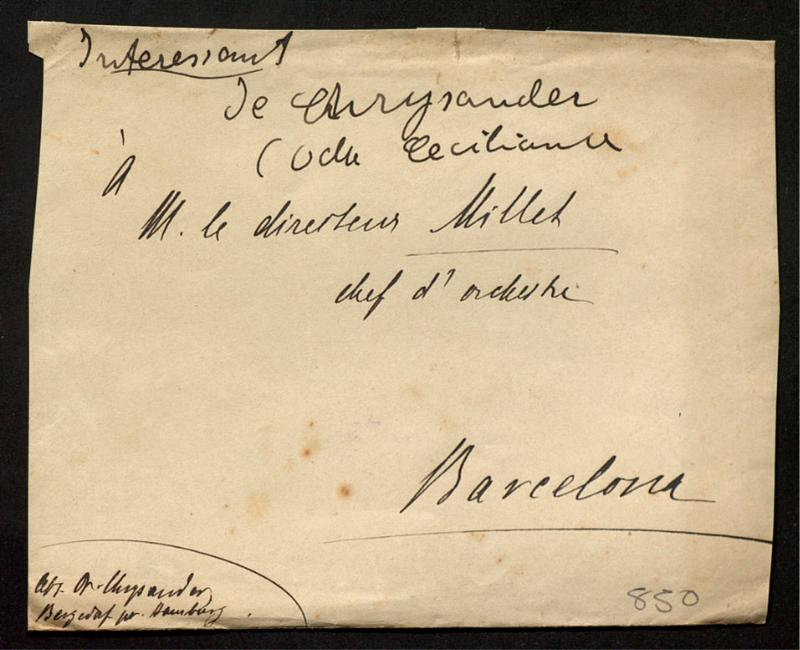 Interessant
De Chrysander
(Oda Ceciliana
à
M. le directeur Millet
chef d'orchestre
Barcelona
Abs. Dr. Chrysander,
Bergedorf pr. Hamburg.
850